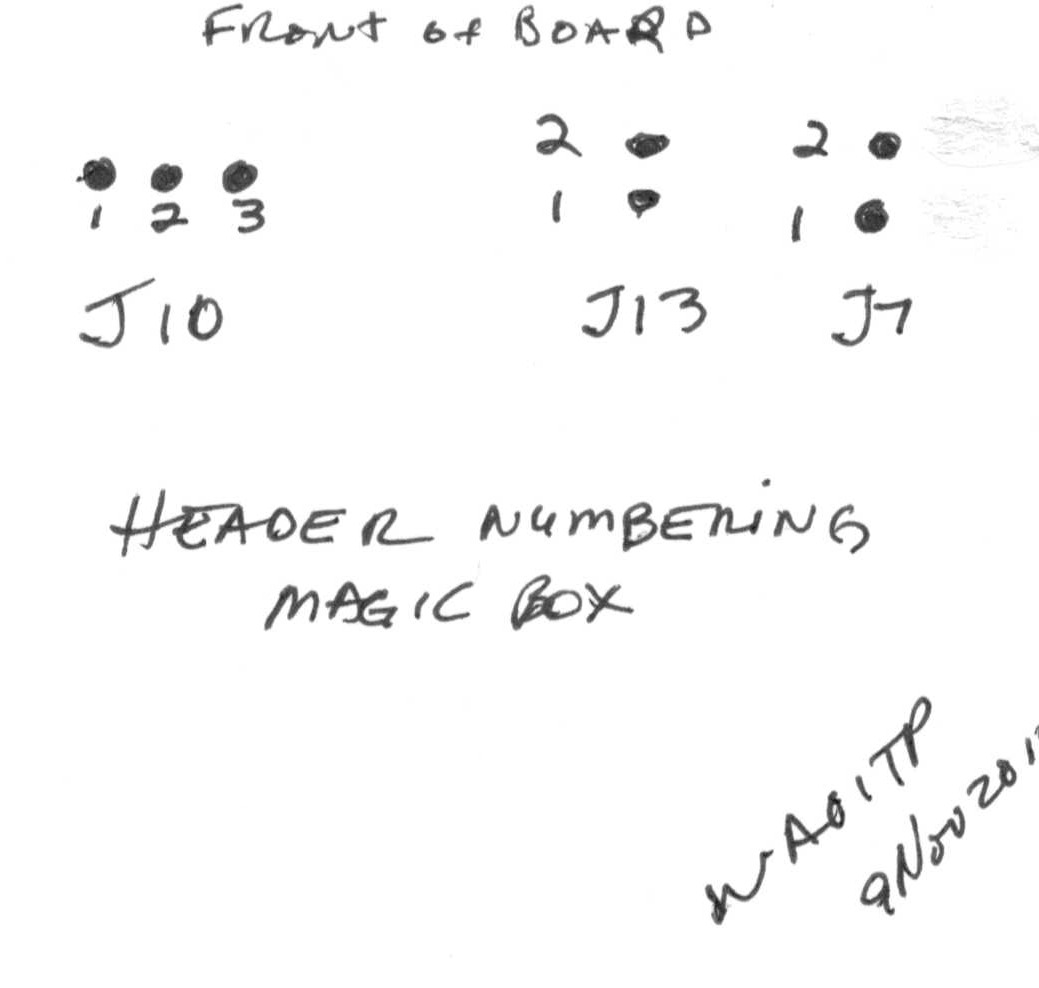 FRont of BOARD
2 2
1 1
1 2 3
J10 J13 J7
HEADER NUMBERiNG
MAGIC BOX
WA0ITP
9Nov 201